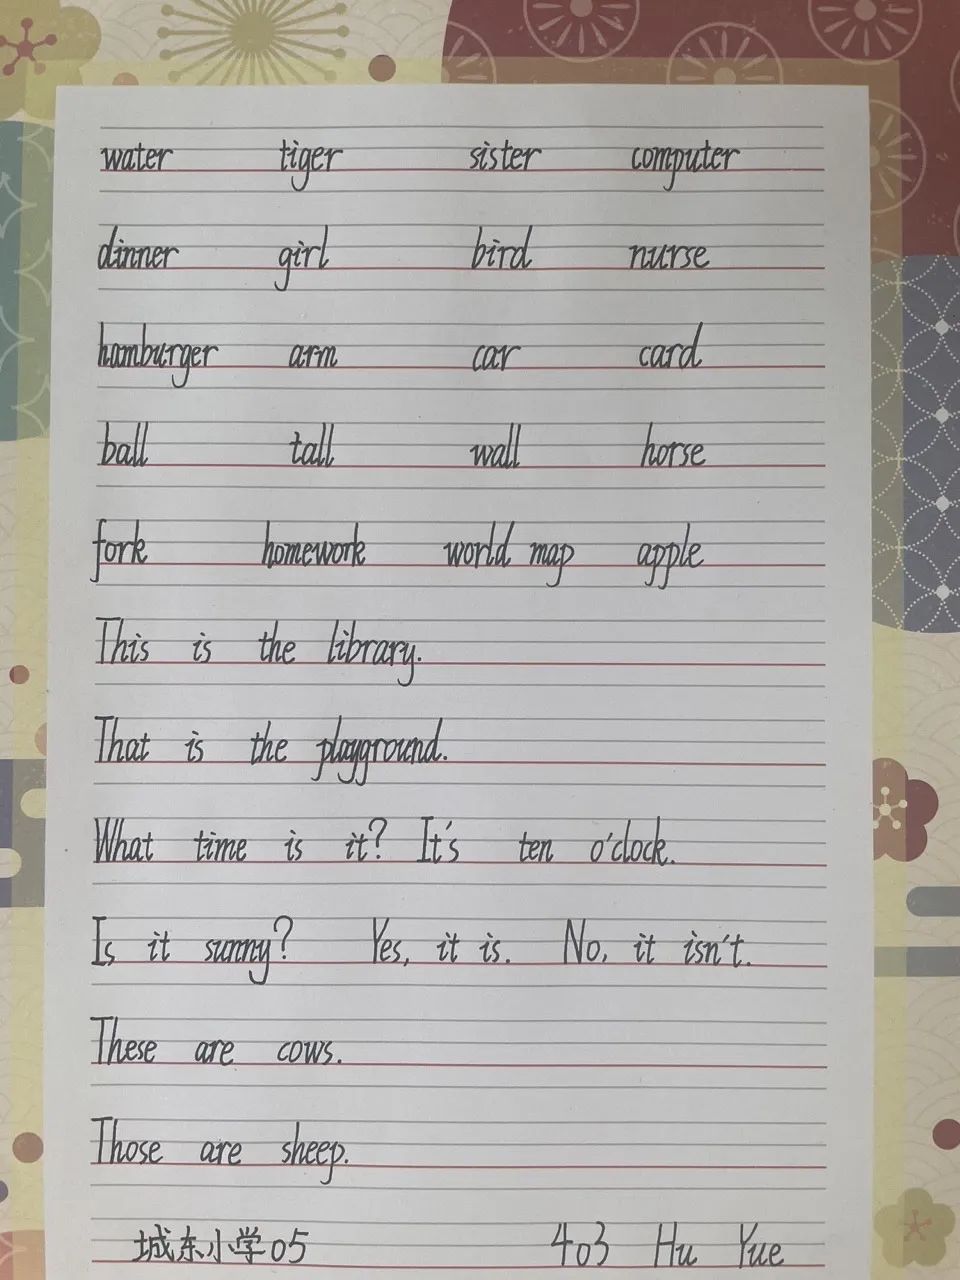 water tiger sister computer
dinner girl bird nurse
hamburger arm car card
ball tall wall horse
fork homework world map apple
This is the library.
That is the playground.
What time is it? It's ten o'clock.
Is it sunny? Yes, it is. No, it isn't.
These are cows.
Those are sheep.
城东小学05 403 Hu Yue